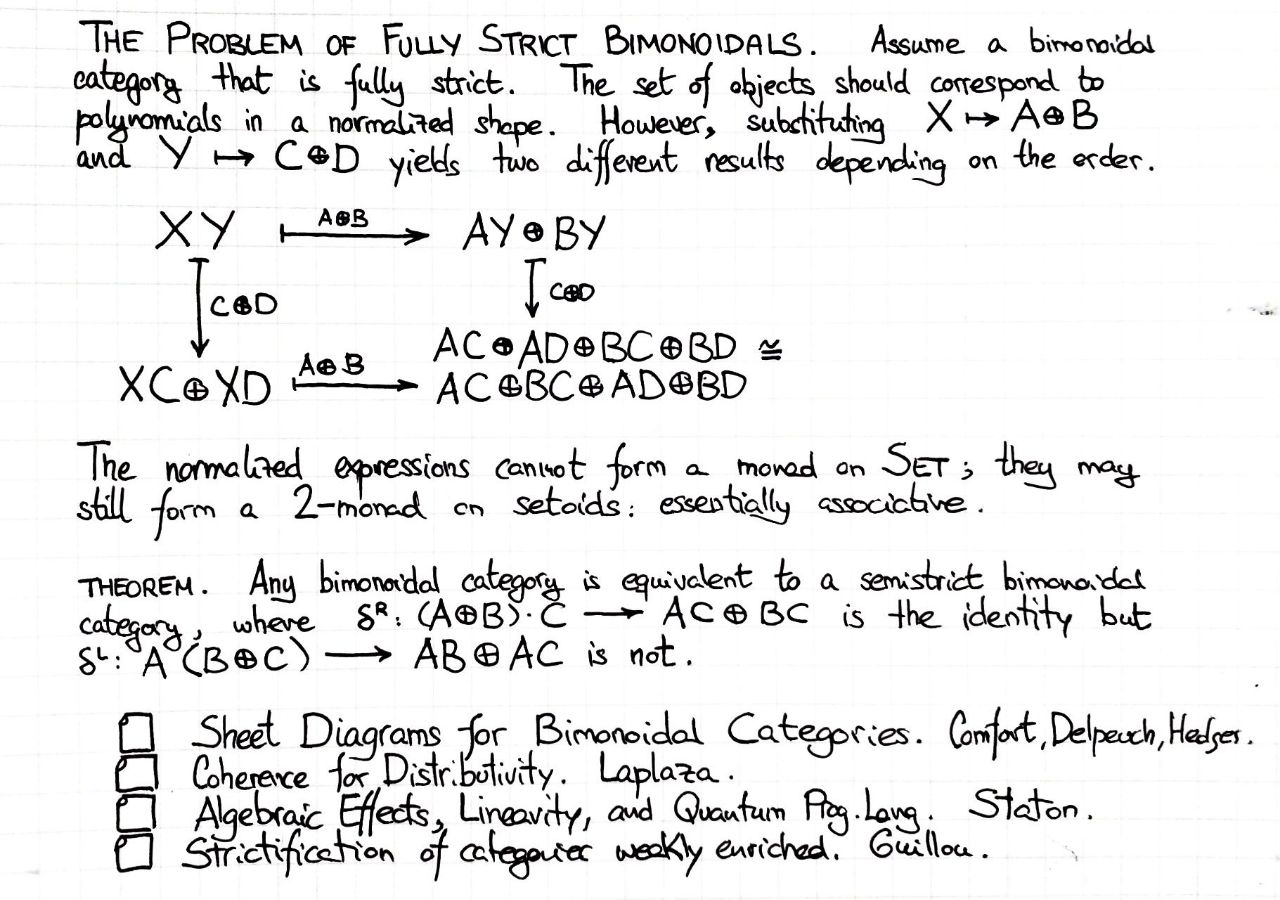 THE PROBLEM OF FULLY STRICT BIMONOIDALS. Assume a bimonoidal
category that is fully strict. The set of objects should correspond to
polynomials in a normalized shape. However, substituting X ↦ A⊕B
and Y ↦ C⊕D yields two different results depending on the order.
XY A⊕B AY⊕BY
C⊕D C⊕D
AC⊕AD⊕BC⊕BD ≅
XC⊕XD A⊕B AC⊕BC⊕AD⊕BD
The normalized expressions cannot form a monad on SET; they may
still form a 2-monad on setoids: essentially associative.
THEOREM. Any bimonoidal category is equivalent to a semistrict bimonoidal
category, where δᴿ: (A⊕B)·C ⟶ AC⊕BC is the identity but
δᴸ: A(B⊕C) ⟶ AB⊕AC is not.
Sheet Diagrams for Bimonoidal Categories. Comfort, Delpeuch, Hedges.
Coherence for Distributivity. Laplaza.
Algebraic Effects, Linearity, and Quantum Prog. Lang. Staton.
Strictification of categories weakly enriched. Guillou.